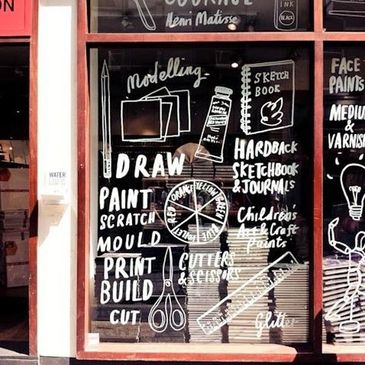 ON
COURAGE
Henri Matisse
INK
BLACK
Modelling
SKETCH
BOOK
FACE
PAINTS
MEDIUM
&
VARNISH
DRAW
HARDBACK
SKETCHBOOK
& JOURNALS
PAINT
SCRATCH
MOULD
RED ORANGE YELLOW GREEN BLUE VIOLET
Children's
Art & Craft
paints
PRINT
BUILD
CUT
CUTTERS
& SCISSORS
Glitter
WATER